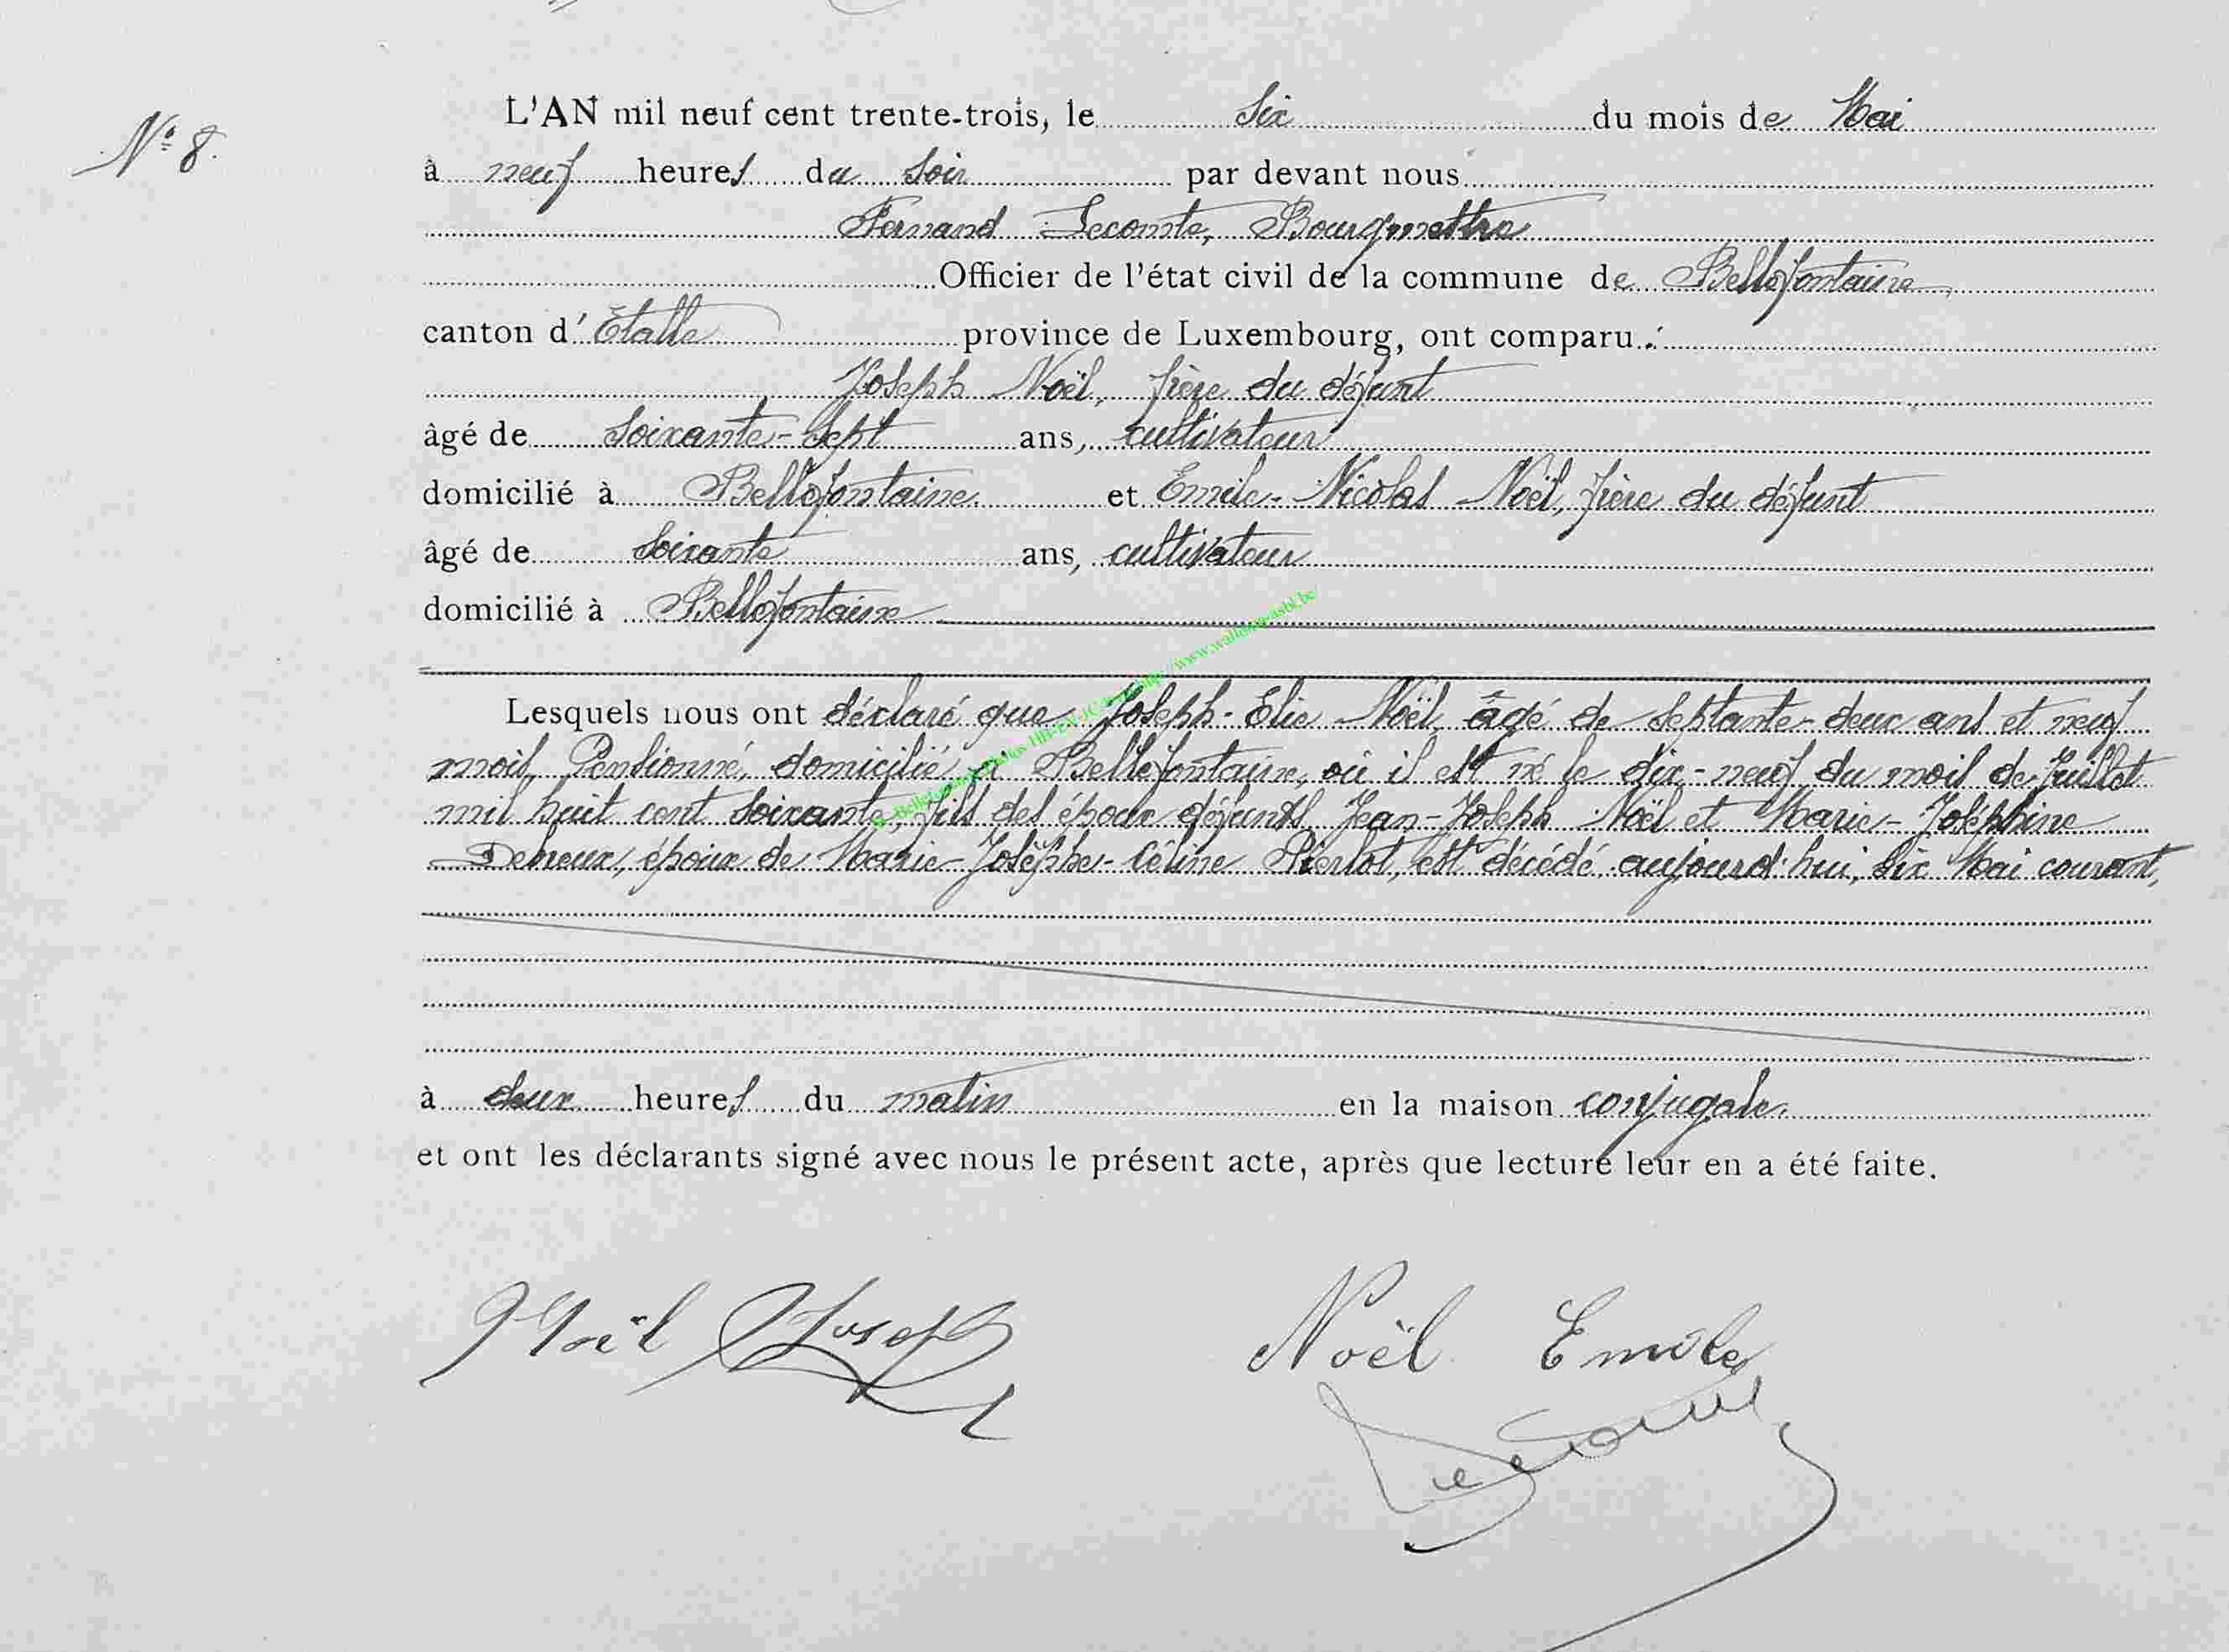 N° 8.
L'AN mil neuf cent trente-trois, le Six du mois de Mai
à neuf heures du soir par devant nous
Fernand Lecomte, Bourgmettre
Officier de l'état civil de la commune de Bellefontaine
canton d'Étalle province de Luxembourg, ont comparu :
Joseph Noël, frère du défunt
âgé de soixante-sept ans, cultivateur
domicilié à Bellefontaine et Emile-Nicolas Noël, frère du défunt
âgé de soixante ans, cultivateur
domicilié à Bellefontaine
Lesquels nous ont déclaré que Joseph-Elie Noël, âgé de septante-deux ans et neuf
mois, Pensionné, domicilié à Bellefontaine, où il est né le dix-neuf du mois de Juillet
mil huit cent soixante, fils des époux défunts Jean-Joseph Noël et Marie-Joséphine
époux de Marie-Josèphe-Céline Pierlot, est décédé aujourd'hui, six Mai courant,
à deux heures du matin en la maison conjugale.
et ont les déclarants signé avec nous le présent acte, après que lecture leur en a été faite.
Noël Joseph Noël Emile